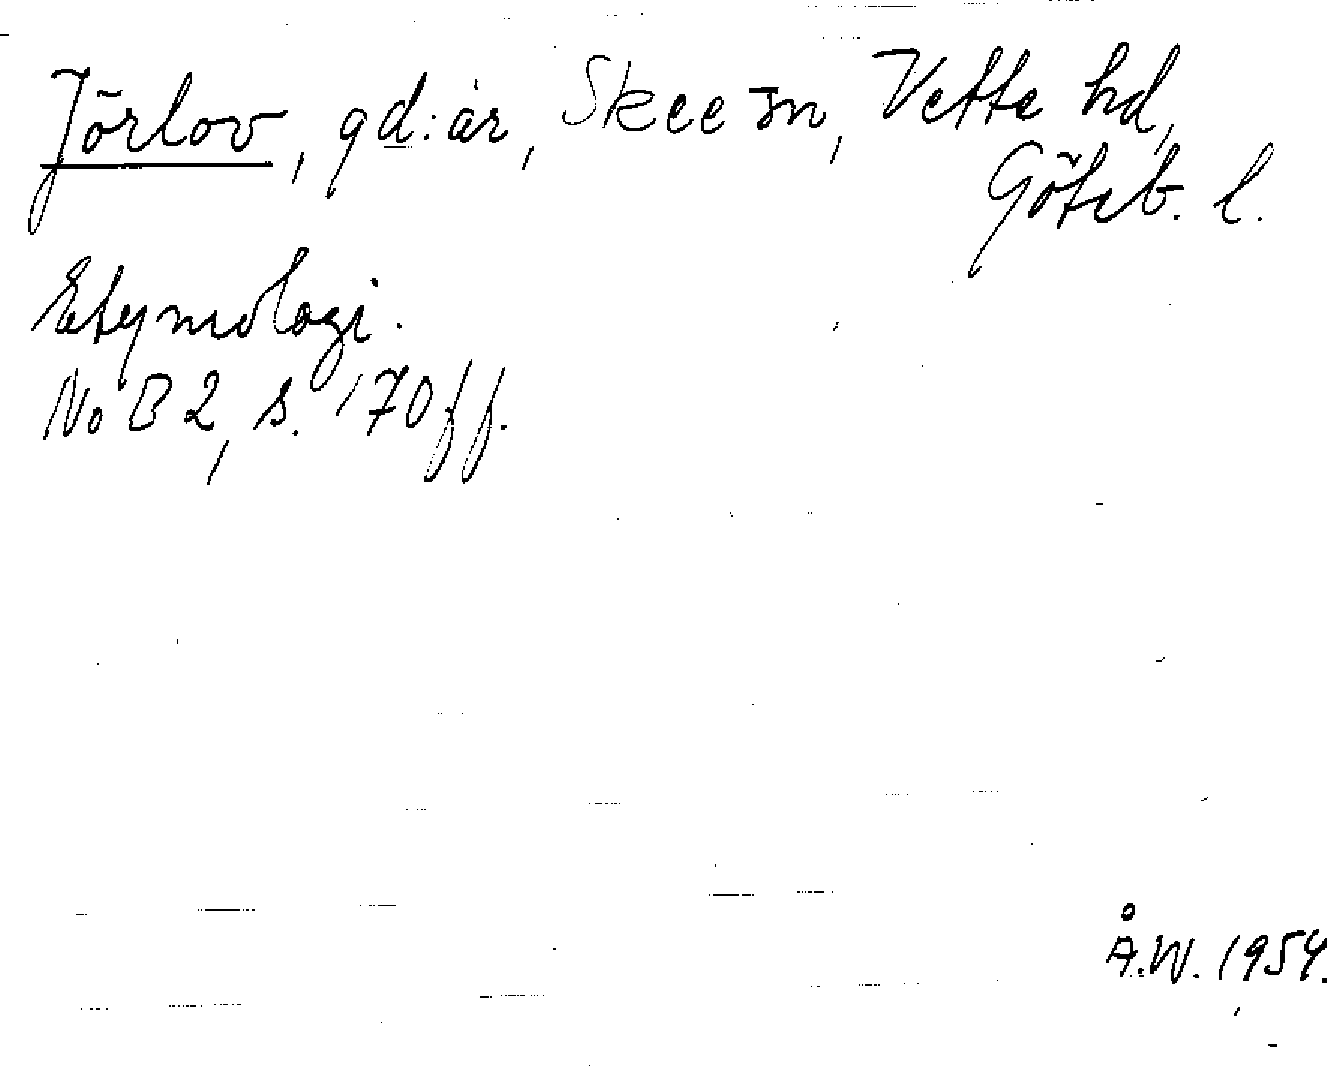 Jörlov, gd:ar, Skee sn, Vette hd,
Göteb. l.
Etymologi.
NoB 2, s. 170 ff.
Å.W. 1954.